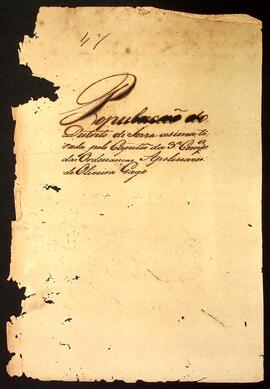 47
População do
Destrito de Serra asima ti
rada pelo Capitão da 3ª Compª
das Ordenanças Apolinario
de Oliveira Gago